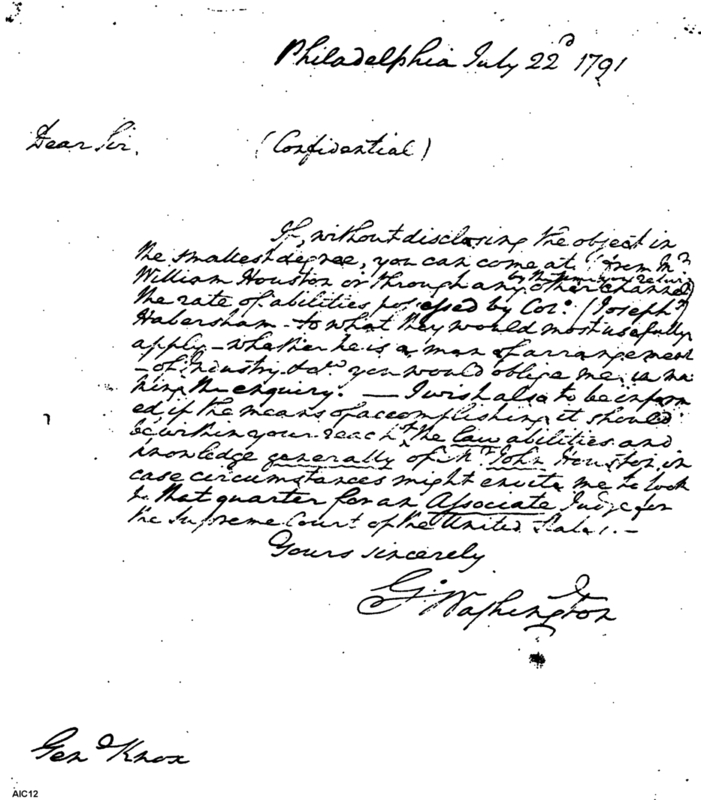 Philadelphia July 22d 1791
Dear Sir, (Confidential)
If, without disclosing the object in
the smallest degree, you can come at (from Mr
William Houston or through any other channel)
the rate of abilities possessed by Colo. (Joseph)
Habersham – to what they would most usefully
apply – whether he is a man of arrangement
– of Industry &ca. you would oblige me in ma
king the enquiry. — I wish also to be inform
ed if the means of accomplishing it should
be within your reach, the law abilities and
knowledge generally of Mr John Houston, in
case circumstances might excite me to look
to that quarter for an Associate Judge for
the Supreme Court of the United States. –
Yours sincerely
Go. Washington
Genl Knox
AIC12